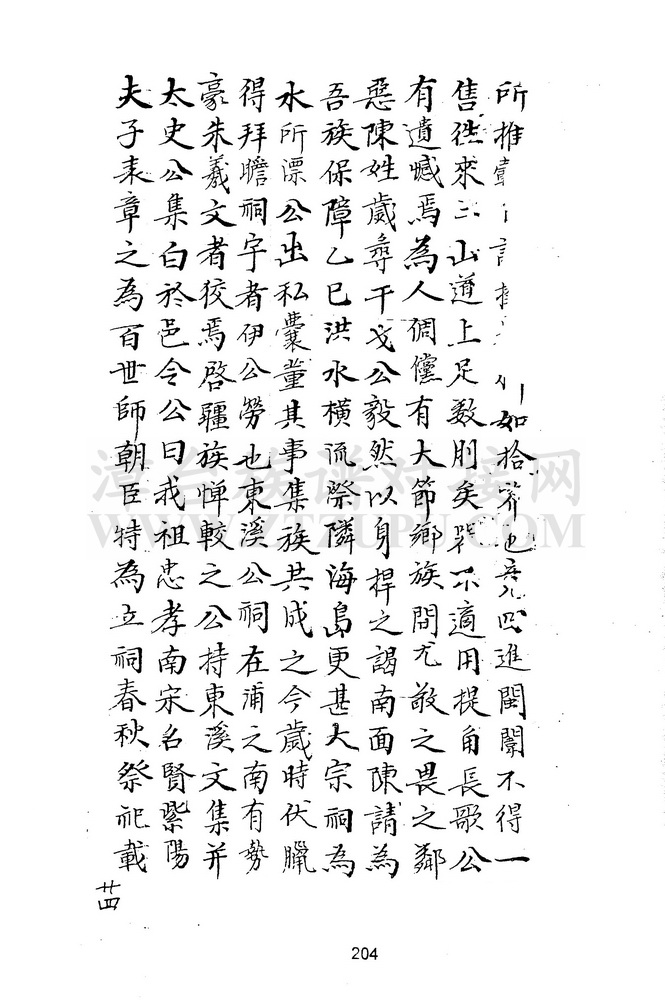 所推 如拾芥也 四進闈闈不得一
售徃來三山道上足数刖矣 不適用提甬長歌公
有遺憾焉為人倜儻有大節鄉族間尤敬之畏之鄰
惡陳姓歲尋干戈公毅然以身捍之謁南面陳請為
吾族保障乙巳洪水橫流滎隣海島更甚大宗祠為
水所漂公出私囊董其事集族共成之今歲時伏臘
得拜瞻祠宇者伊公勞也東溪公祠在浦之南有勢
豪朱羲文者狡焉啓疆族憚較之公持東溪文集并
太史公集白於邑令公曰我祖忠孝南宋名賢紫陽
夫子表章之為百世師朝臣特為立祠春秋祭祀載
廿四
204
漳台族谱对接网
WWW.ZTZUPU.COM